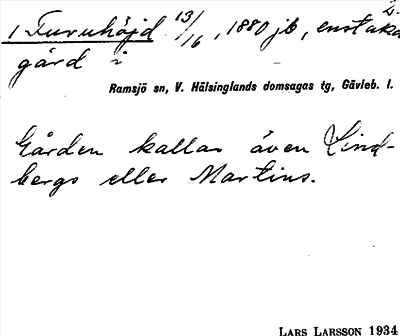 2.
1 Furuhöjd 13/16, 1880 jb, enstaka
gård i
Ramsjö sn, V. Hälsinglands domsagas tg, Gävleb. l.
Gården kallas även Lind-
bergs eller Martins.
LARS LARSSON 1934